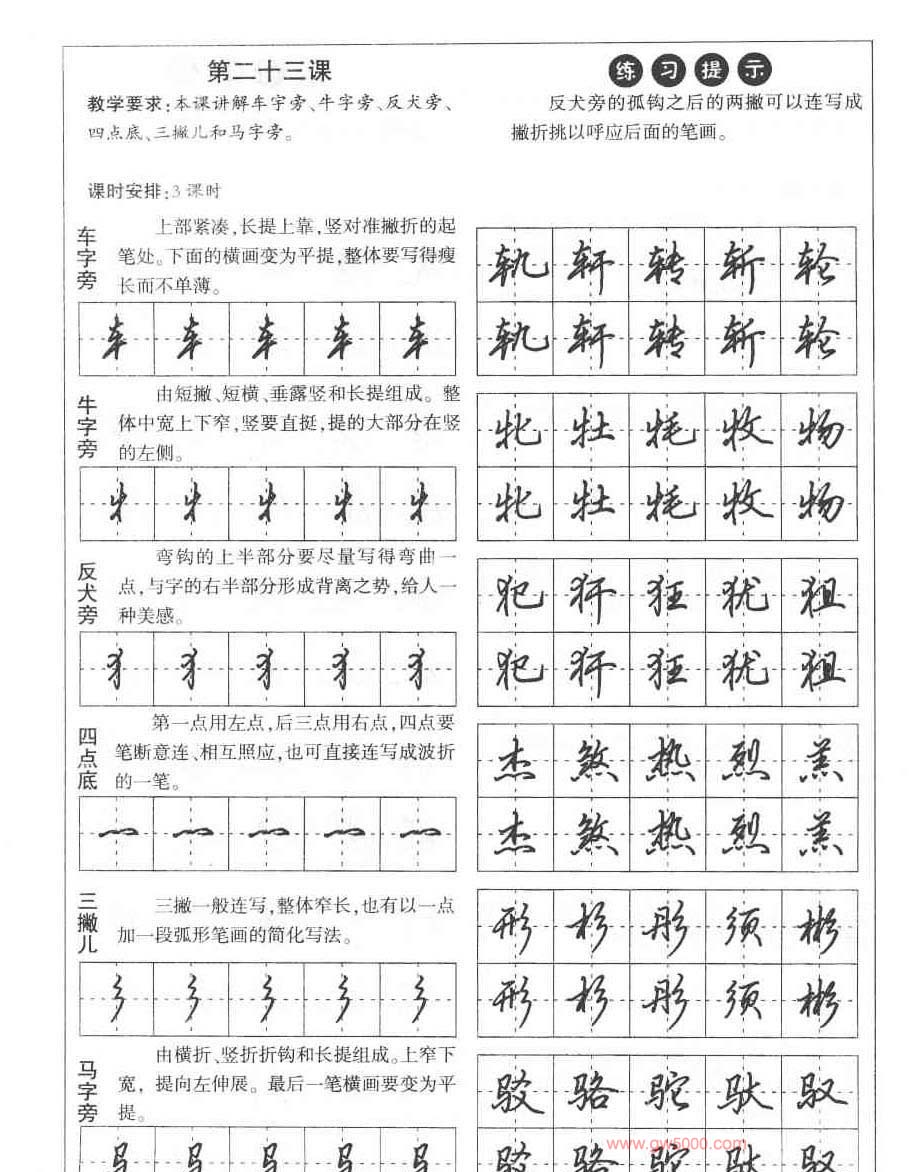 第二十三课
教学要求:本课讲解车字旁、牛字旁、反犬旁、
四点底、三撇儿和马字旁。
课时安排:3课时
练习提示
反犬旁的孤钩之后的两撇可以连写成
撇折挑以呼应后面的笔画。
车字旁
上部紧凑,长提上靠,竖对准撇折的起
笔处。下面的横画变为平提,整体要写得瘦
长而不单薄。
轨轩转斩轮
轨轩转斩轮
牛字旁
由短撇、短横、垂露竖和长提组成。整
体中宽上下窄,竖要直挺,提的大部分在竖
的左侧。
牝牡牦牧物
牝牡牦牧物
反犬旁
弯钩的上半部分要尽量写得弯曲一
点,与字的右半部分形成背离之势,给人一
种美感。
犯犴狂犹狙
犯犴狂犹狙
四点底
第一点用左点,后三点用右点,四点要
笔断意连、相互照应,也可直接连写成波折
的一笔。
杰煞热烈羔
杰煞热烈羔
三撇儿
三撇一般连写,整体窄长,也有以一点
加一段弧形笔画的简化写法。
彡彡彡彡彡
形杉彤须彬
形杉彤须彬
马字旁
由横折、竖折折钩和长提组成。上窄下
宽,提向左伸展。最后一笔横画要变为平
提。
驳骆驼驮驭
驳骆驼驮驭
www.gw5000.com